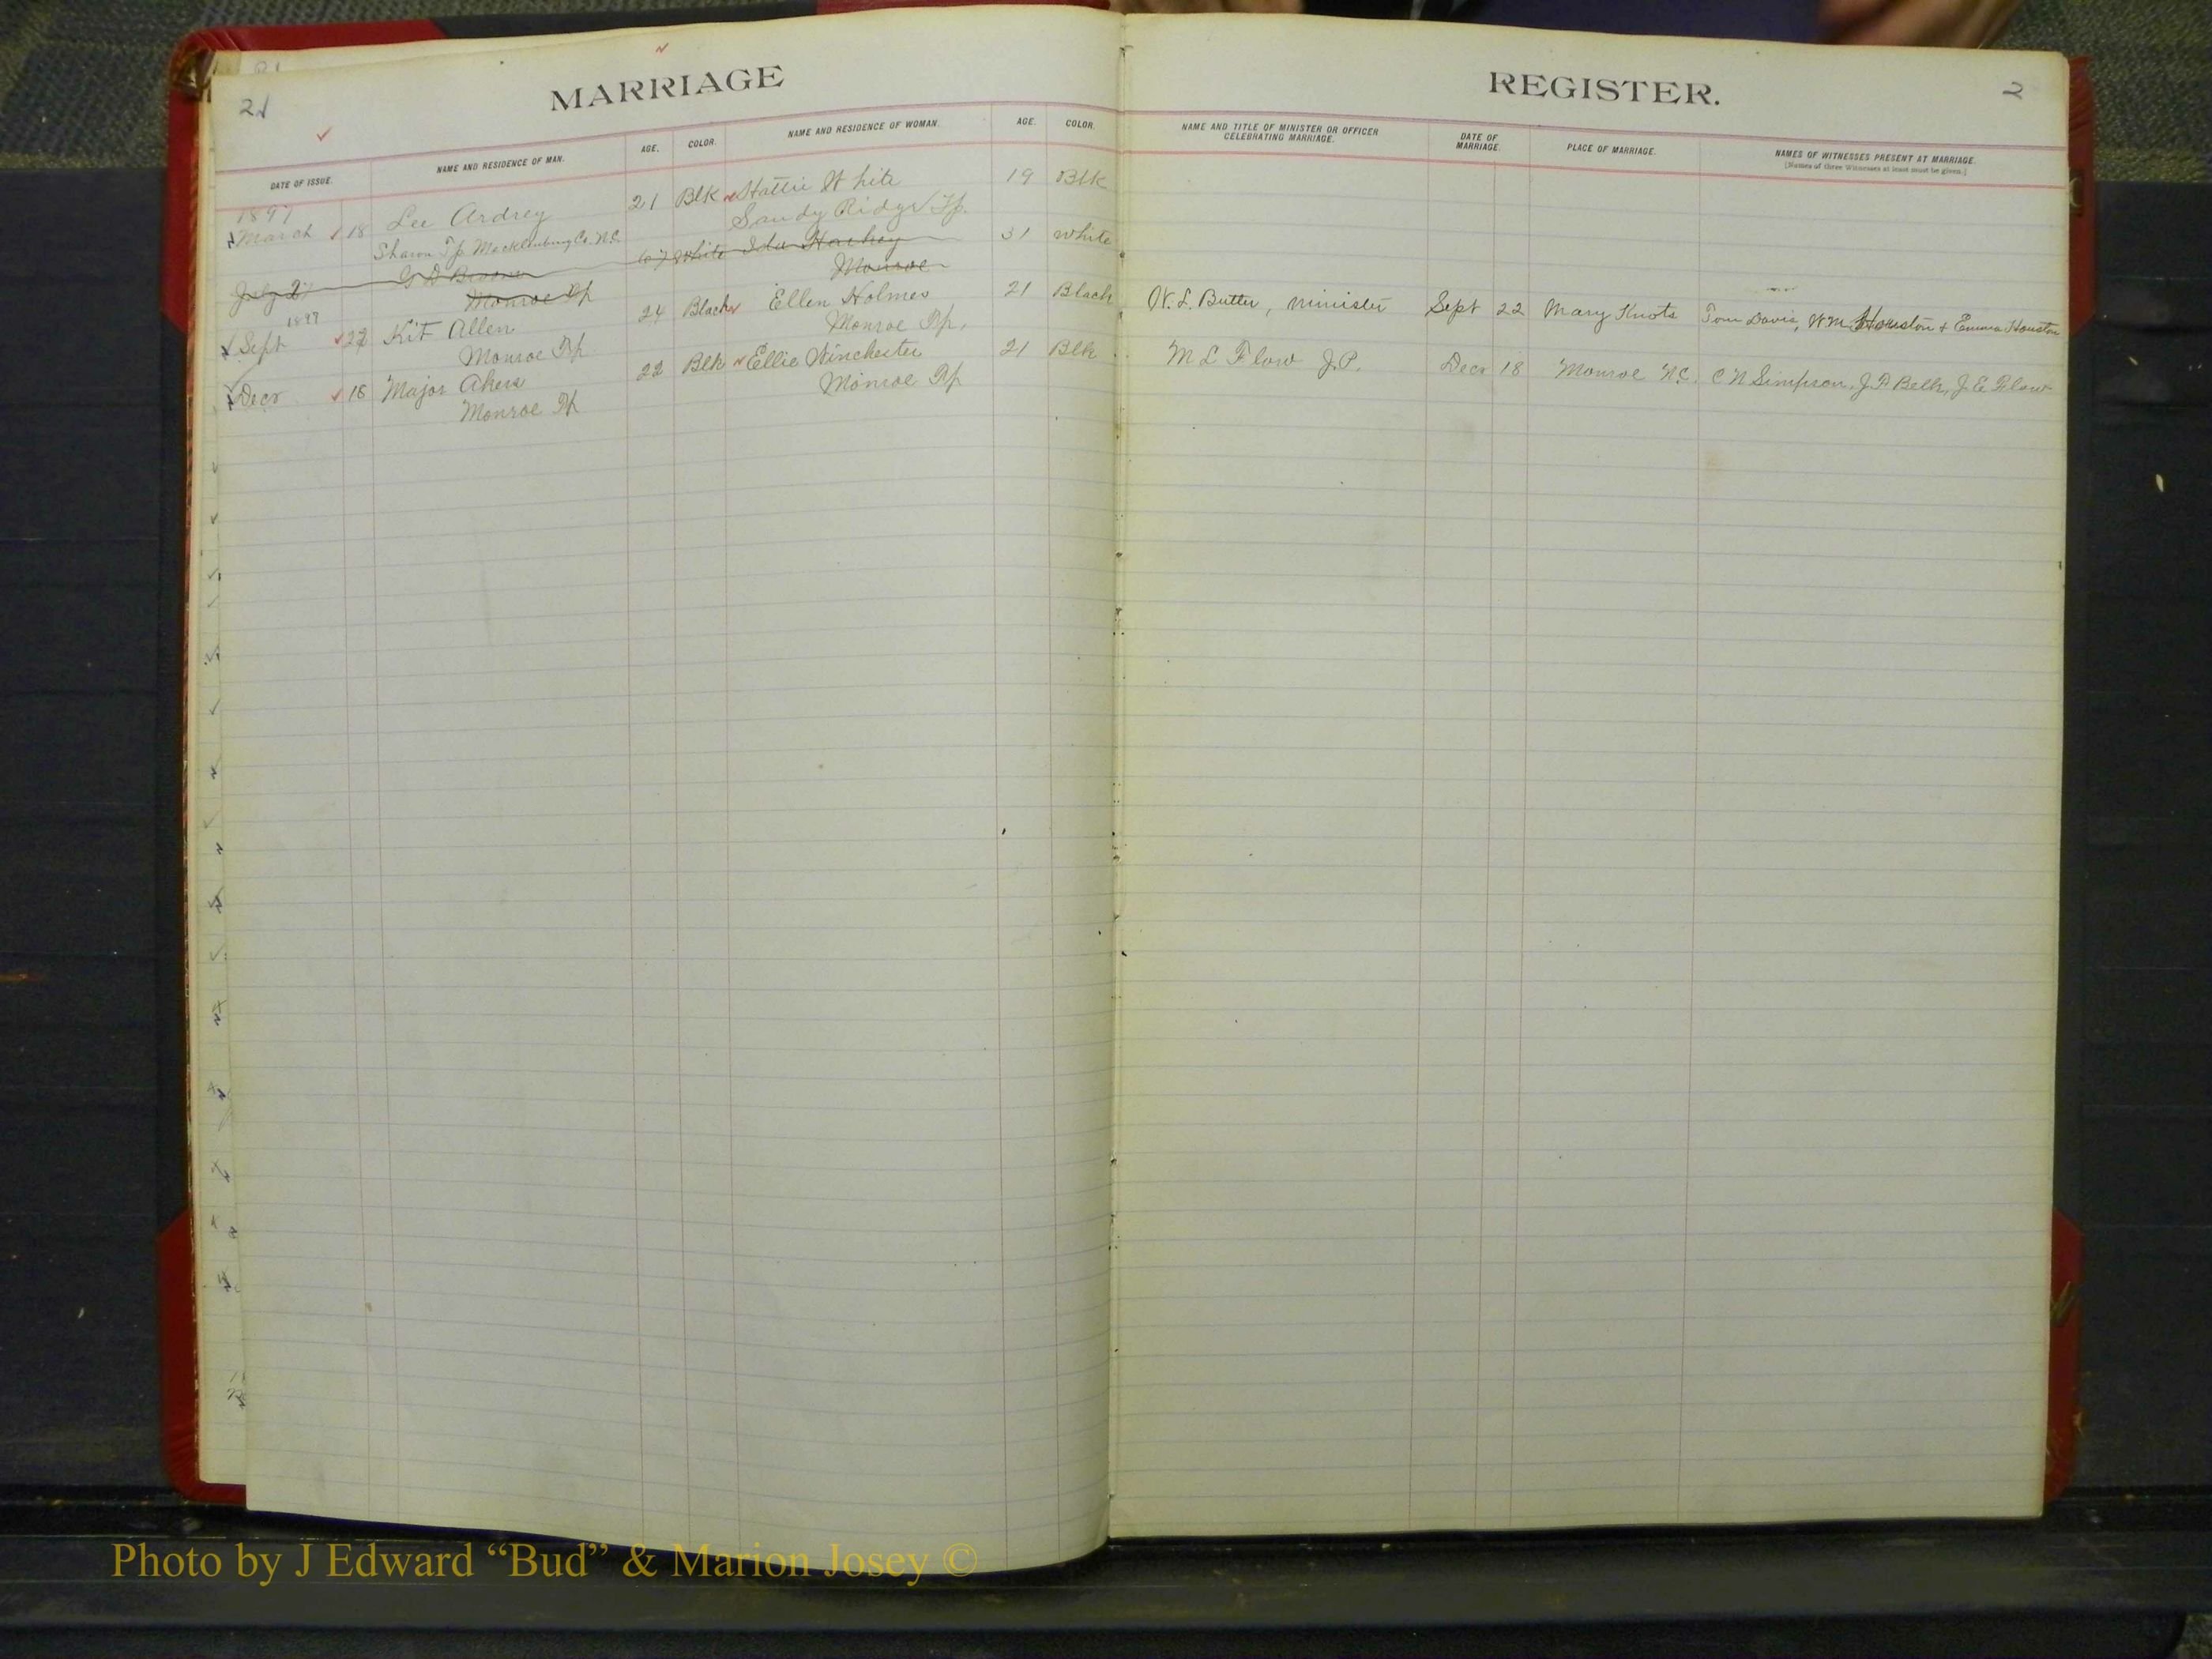 MARRIAGE
REGISTER.
21
2
DATE OF ISSUE. NAME AND RESIDENCE OF MAN. AGE. COLOR. NAME AND RESIDENCE OF WOMAN. AGE. COLOR. NAME AND TITLE OF MINISTER OR OFFICER CELEBRATING MARRIAGE. DATE OF MARRIAGE. PLACE OF MARRIAGE. NAMES OF WITNESSES PRESENT AT MARRIAGE.
[Names of three Witnesses at least must be given.]
1897
March 18 Lee Ardrey 21 Blk Hattie White 19 Blk
Sharon Tp. Mecklenburg Co. N.C. Sandy Ridge Tp.
July 27 G D Broom 67 White Ida 31 White
Monroe Tp Monroe
1897
Sept 22 Kit Allen 24 Black Ellen Holmes 21 Black W. L. Butler, minister Sept 22 Mary Knots Tom Davis, W.M. Houston & Emma Houston
Monroe Tp Monroe Tp.
Decr 18 Major Akers 22 Blk Ellie Winchester 21 Blk M L Flow J.P. Decr 18 Monroe N.C. C N Simpson, J P Belk, J E Flow
Monroe Tp Monroe Tp
Photo by J Edward “Bud” & Marion Josey ©